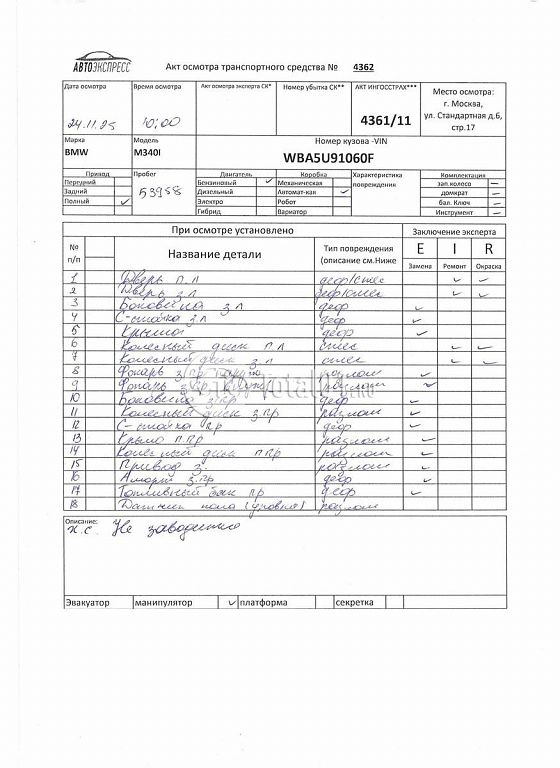 АВТОЭКСПРЕСС
Акт осмотра транспортного средства № 4362
Дата осмотра Время осмотра Акт осмотра эксперта СК* Номер убытка СК** АКТ ИНГОССТРАХ*** Место осмотра:
г. Москва,
ул. Стандартная д.6,
стр.17
24.11.25 10:00 4361/11
Марка Модель Номер кузова -VIN
BMW M340I WBA5U91060F
Привод Пробег Двигатель Коробка Характеристика повреждения Комплектация
Передний Бензиновый ✓ Механическая зап.колесо –
Задний 53958 Дизельный Автомат-кая ✓ домкрат –
Полный ✓ Электро Робот бал. Ключ –
Гибрид Вариатор Инструмент –
При осмотре установлено Заключение эксперта
№ п/п Название детали Тип повреждения (описание см.Ниже E I R
Замена Ремонт Окраска
1 Дверь п.л деф/смес ✓ ✓
2 Дверь з.л деф/смес ✓ ✓
3 Боковина з.л деф ✓
4 С-стойка л деф ✓
5 Крыша деф ✓
6 Колесный диск п.л смес ✓ ✓
7 Колесный диск з.л смес ✓ ✓
8 Фонарь з.пр разлом ✓
9 Фонарь з.пр разлом ✓
10 Боковина з.пр деф ✓
11 Колесный диск з.пр разлом ✓
12 С-стойка пр деф ✓
13 Крыло п.пр разлом ✓
14 Колесный диск п.пр разлом ✓
15 Привод з. разлом ✓
16 Аморт з.пр деф ✓
17 Топливный бак пр деф ✓
18 Датчик пола (уровня) разлом
Описание:
х.с. Не заводится
Эвакуатор манипулятор ✓ платформа секретка